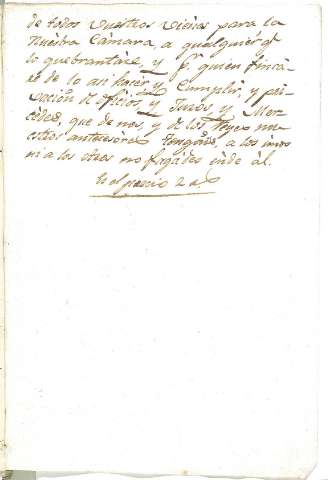 de todos Vuestros Vienes para la
Nuestra Cámara, a qualquier q̃
lo quebrantáre, y p.ʳ quien fincá-
re de lo asi hacer y Cumplir, y pri-
vacion de oficios, y Juros, y Mer-
cedes, que de nos, y de los Reyes nu-
estros antecesores tengades, a los unos
ni a los otros no fagádes ende ál.
Es el precio 2